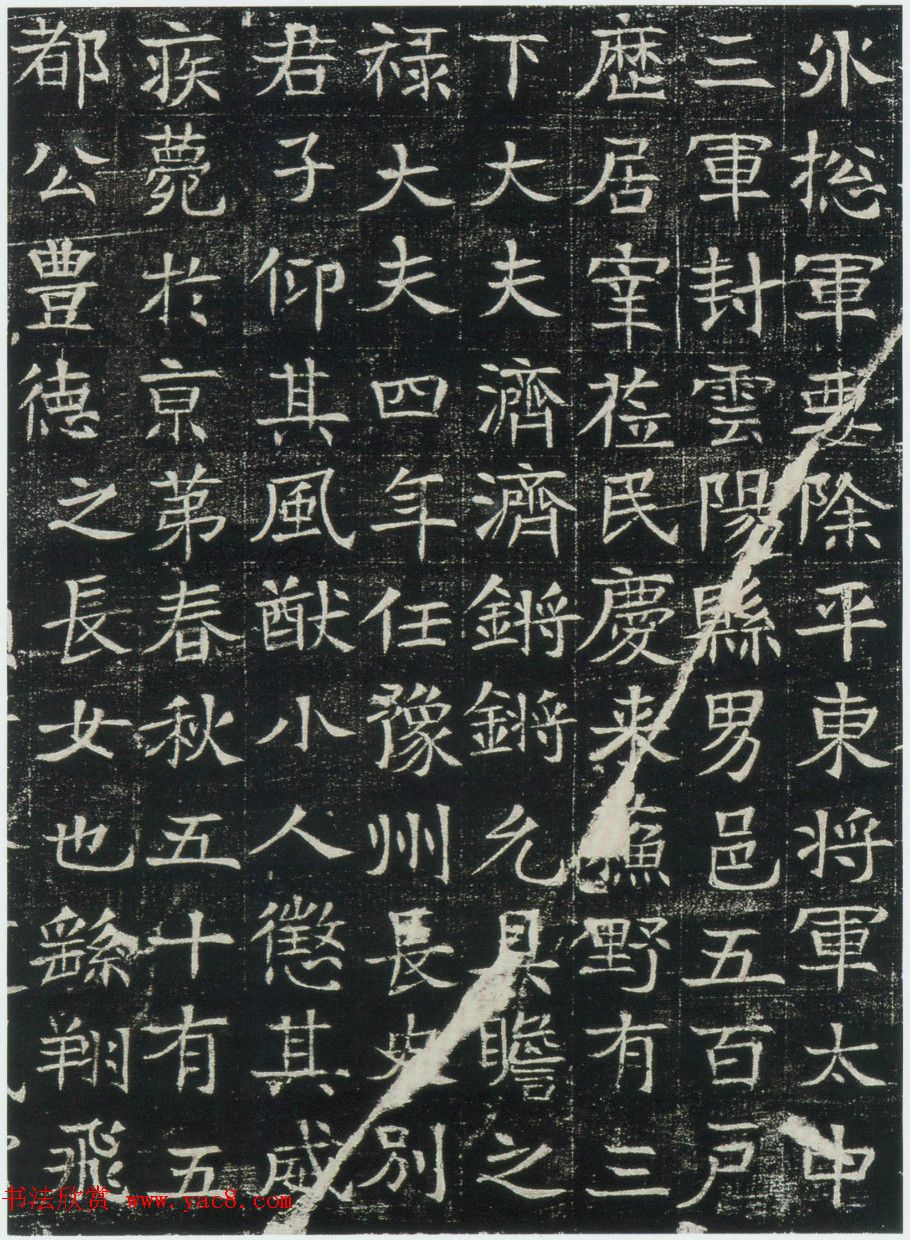 永揔軍要除平東将軍太中
三軍封雲陽縣男邑五百戸
歴居宰莅民慶来蘓野有三
下大夫濟濟鏘鏘允具瞻之
禄大夫四年任豫州長史別
君子仰其風猷小人懲其威
疾薨於京第春秋五十有五
都公豐德之長女也繇翔飛
书法欣赏 www.yac8.com